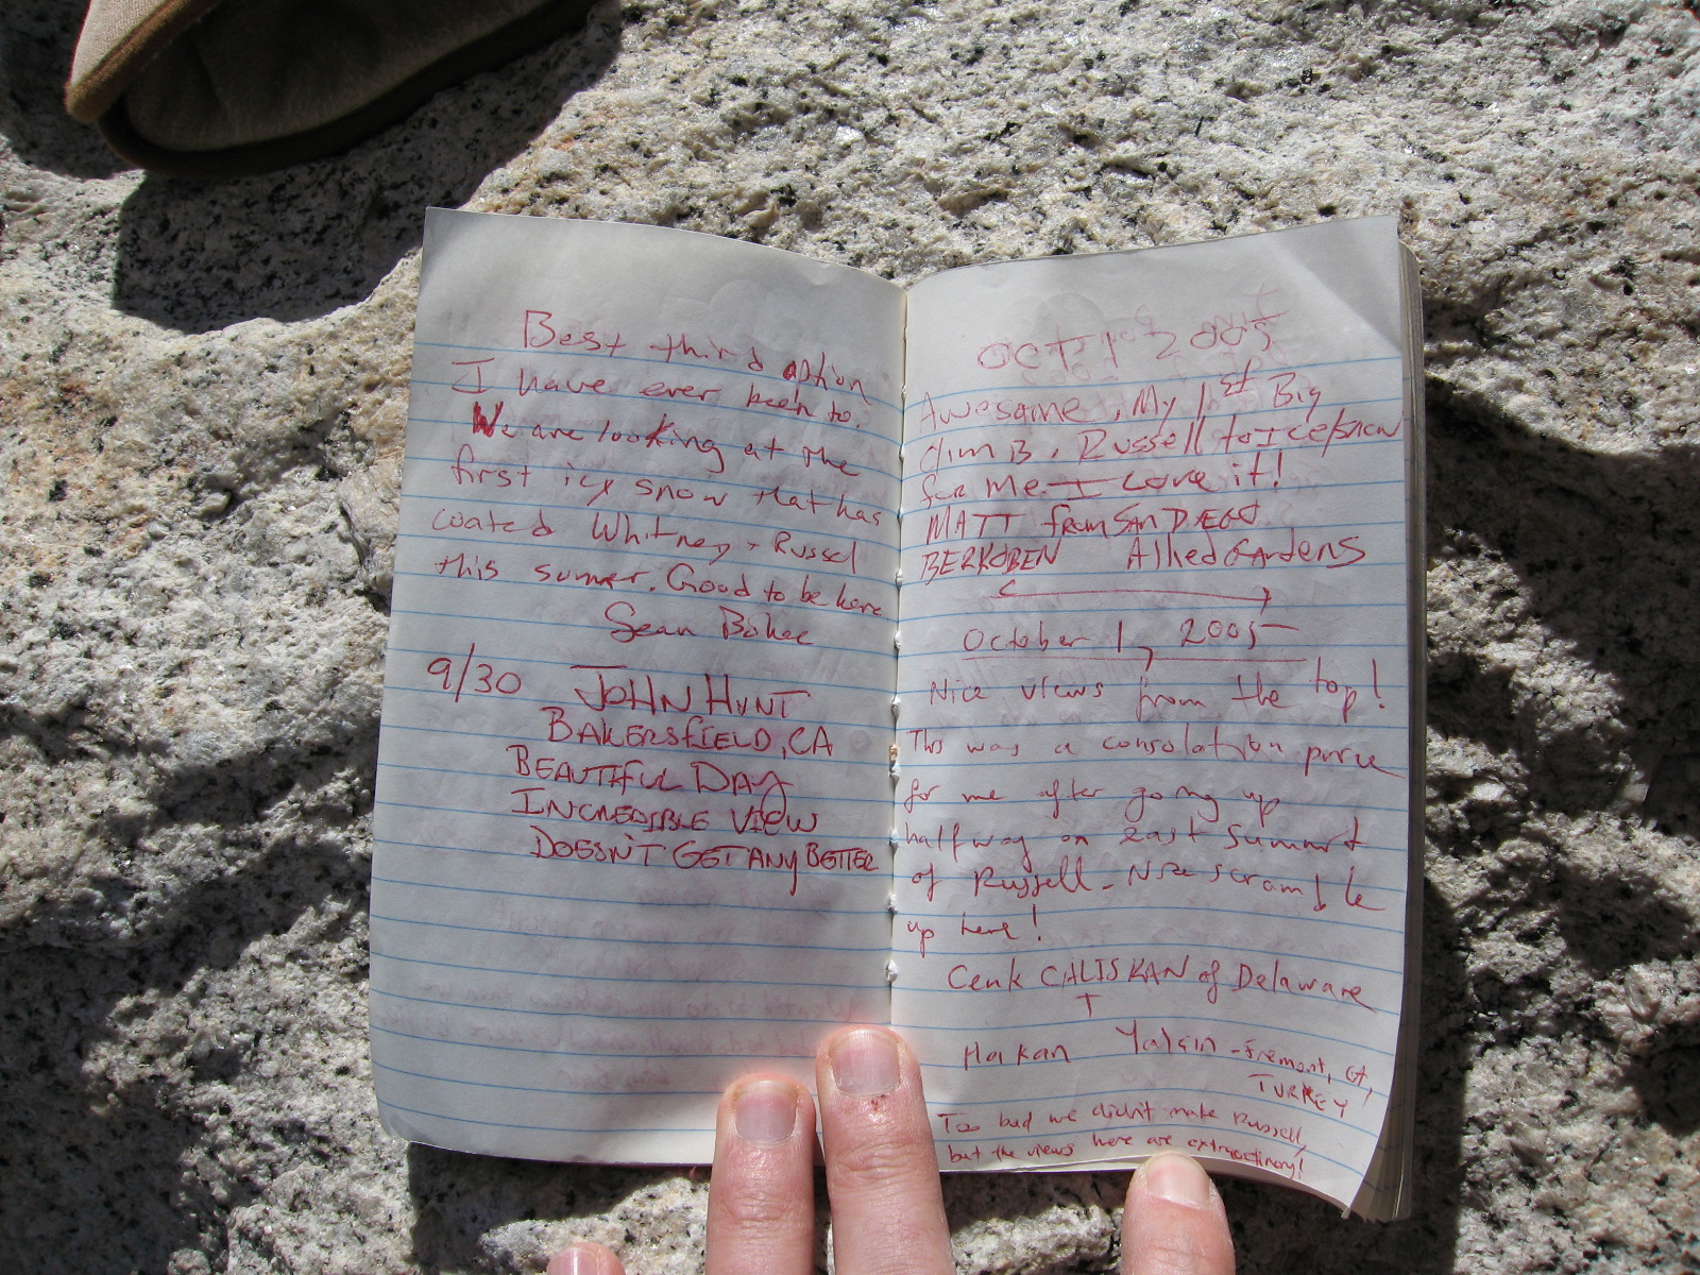 Best third option
I have ever been to.
We are looking at the
first icy snow that has
coated Whitney + Russel
this summer. Good to be here
Sean
9/30 JOHN HUNT
BAKERSFIELD, CA
BEAUTIFUL DAY
INCREDIBLE VIEW
DOESN'T GET ANY BETTER
OCT 1 2005
Awesome, My 1st Big
climb, Russell to Ice/snow
for Me. I Love it!
MATT from SAN DIEGO
Allied GARDENS
October 1, 2005
Nice views from the top!
This was a consolation
for me after going up
halfway on east summit
of Russell - Nice scramble
up here!
Cenk CALISKAN of Delaware
Hakan Yalcin - Fremont, CA,
TURKEY
Too bad we didn't make Russell,
but the views here are